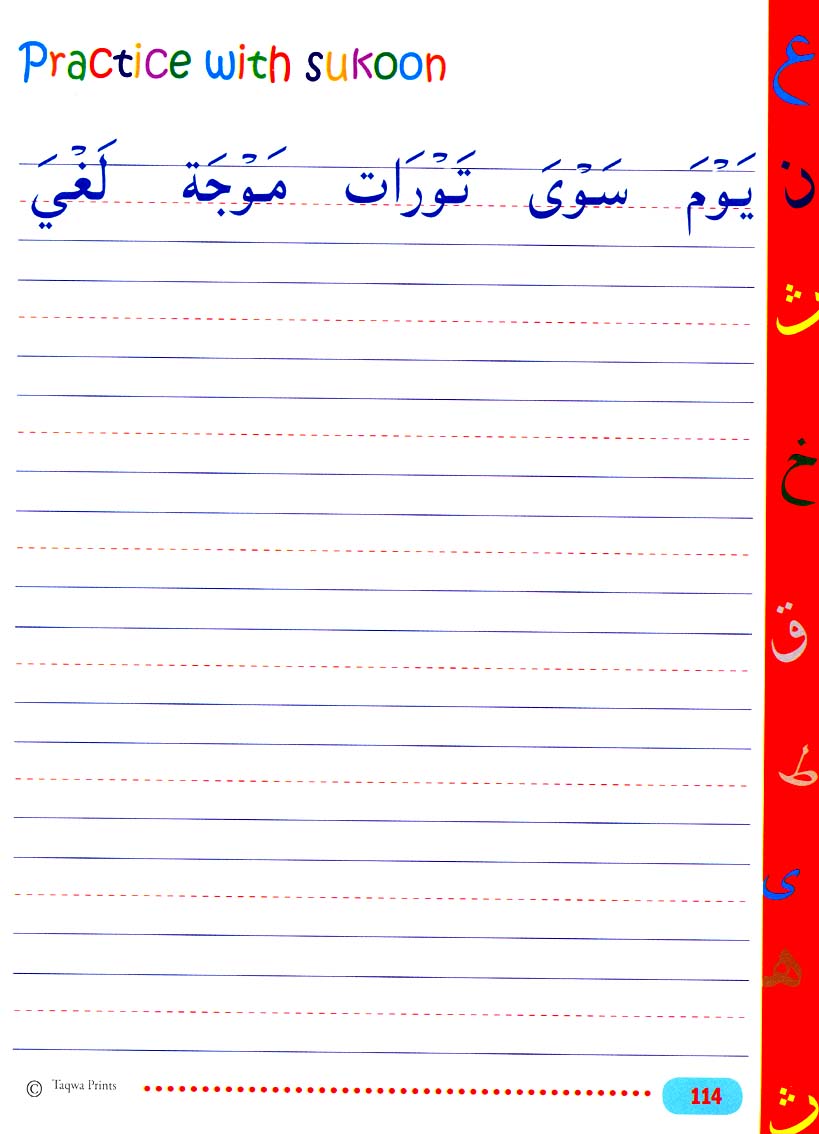 Practice with sukoon
يَوْمَ سَوْىَ تَوْرَات مَوْجَة لَغْيَ
ع
ن
ث
خ
ق
ط
ى
ه
ث
© Taqwa Prints 114